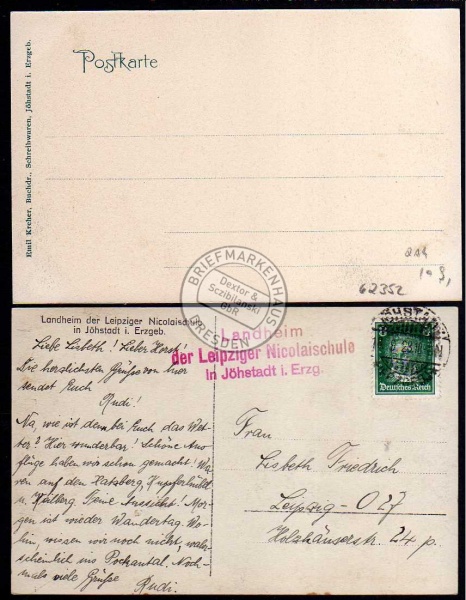 Postkarte
Emil Kreher, Buchdr., Schreibwaren, Jöhstadt i. Erzgeb.
214
62352
BRIEFMARKENHAUS
Dextor &
Sczibilanski
GbR
DRESDEN
Landheim der Leipziger Nicolaischule
in Jöhstadt i. Erzgeb.
Landheim
der Leipziger Nicolaischule
in Jöhstadt i. Erzg.
JÖHSTADT
Deutsches Reich
Liebe Lisbeth! Lieber Horst!
Die herzlichsten Grüße von hier
sendet Euch
Rudi!
Na, wie ist denn bei Euch das Wet-
ter? Hier wunderbar! Schöne Aus-
flüge haben wir schon gemacht! Wa-
ren auf den Hatsberg, Kupferhübel
u. Keilberg. Feine Fernsicht! Mor-
gen ist wieder Wandertag. Wo-
hin wissen wir noch nicht, wahr-
scheinlich ins Pockautal. Noch-
mals viele Grüße
Rudi.
Frau
Lisbeth Friedrich
Leipzig - O 27
Holzhäuserstr. 24 p.